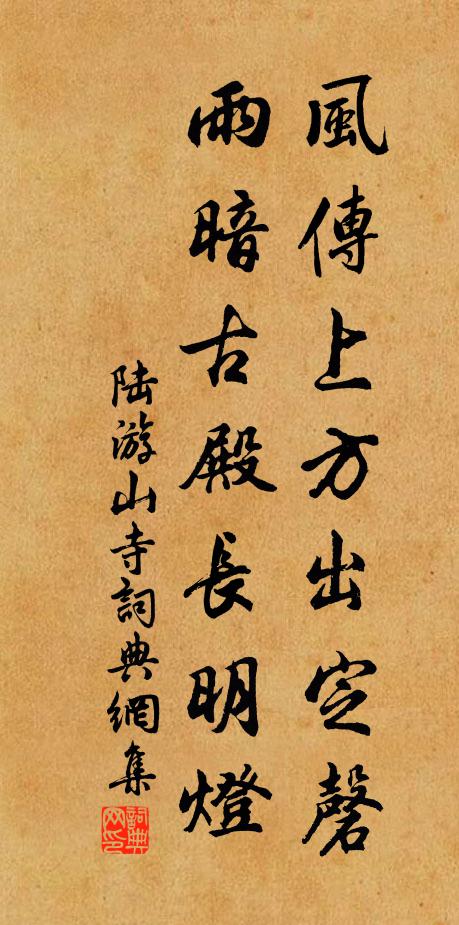 風傳上方出定磬
雨暗古殿長明燈
陆游山寺詞典網集
詞典网印